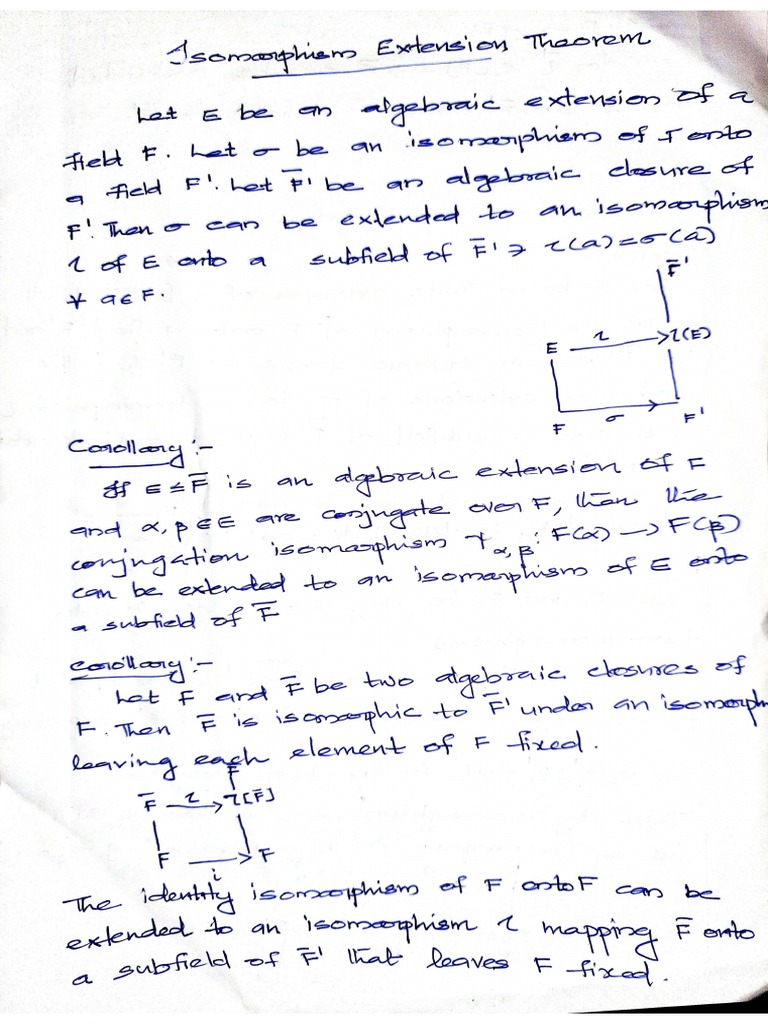 Isomorphism Extension Theorem
Let E be an algebraic extension of a
field F. Let σ be an isomorphism of F onto
a field F'. Let F̅' be an algebraic closure of
F'. Then σ can be extended to an isomorphism
τ of E onto a subfield of F̅' ∋ τ(a)=σ(a)
∀ a∈F.
F̅'
E τ τ(E)
F σ F'
Corollary :-
If E≤F̅ is an algebraic extension of F
and α, β∈E are conjugate over F, then the
conjugation isomorphism ψα,β : F(α) → F(β)
can be extended to an isomorphism of E onto
a subfield of F̅
Corollary :-
Let F and F̅ be two algebraic closures of
F. Then F̅ is isomorphic to F̅' under an isomorph
leaving each element of F fixed.
F̅
F̅ τ τ[F̅]
F i F
The identity isomorphism of F onto F can be
extended to an isomorphism τ mapping F̅ onto
a subfield of F̅' that leaves F fixed.